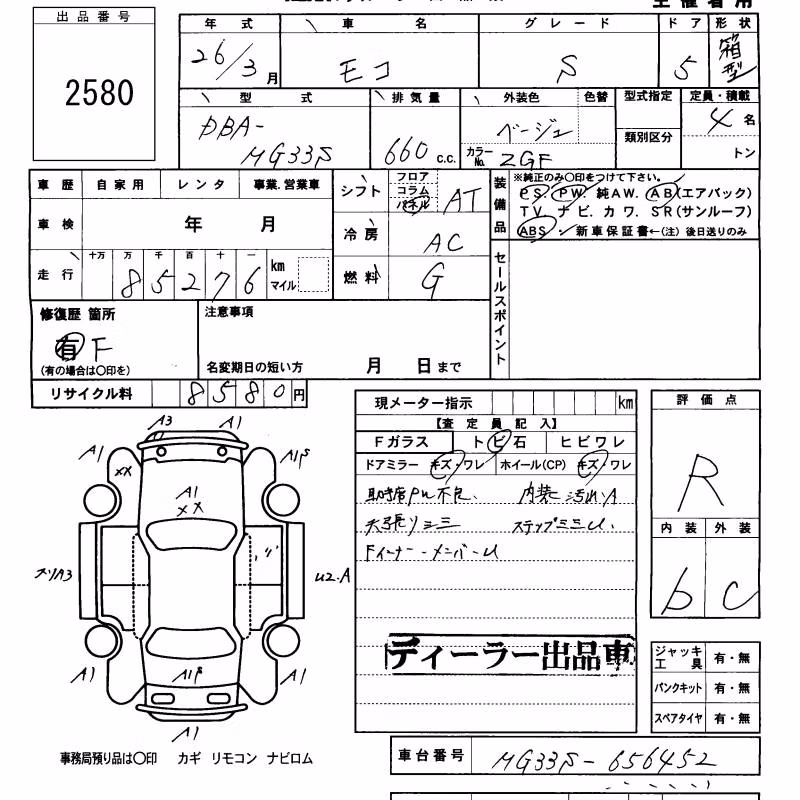 出品番号
2580
年式 車名 グレード ドア 形状
26/3月 モコ S 5 箱型
型式 排気量 外装色 色替 型式指定 定員・積載
DBA-
MG33S 660 c.c. ベージュ 類別区分 4名
カラーNo. ZGF トン
車歴 自家用 レンタ 事業.営業車
車検 年 月
走行 十万 万 千 百 十 一
85276 km マイル
シフト フロア コラム パネル AT
冷房 AC
燃料 G
装備品
※純正のみ〇印をつけて下さい。
PS. PW. 純AW. AB(エアバック)
TV. ナビ. カワ. SR(サンルーフ)
ABS . 新車保証書←(注) 後日送りのみ
セールスポイント
修復歴 箇所
有 F
(有の場合は〇印を)
注意事項
名変期日の短い方 月 日まで
リサイクル料 8580円
現メーター指示 km
【査定員記入】
Fガラス トビ石 ヒビワレ
ドアミラー キズ・ワレ ホイール(CP) キズ・ワレ
助手席PW不良、 内装汚れA
天張りシミ ステップミミU.
Fインナー・メンバーU
ディーラー出品車
評価点
R
内装 外装
b C
ジャッキ工具 有・無
パンクキット 有・無
スペアタイヤ 有・無
A3 A1
A1 A1S
××
A1
××
スリA3 U2.A
A1 A1S A1
A1
事務局預り品は〇印 カギ リモコン ナビロム
車台番号 MG33S-656452